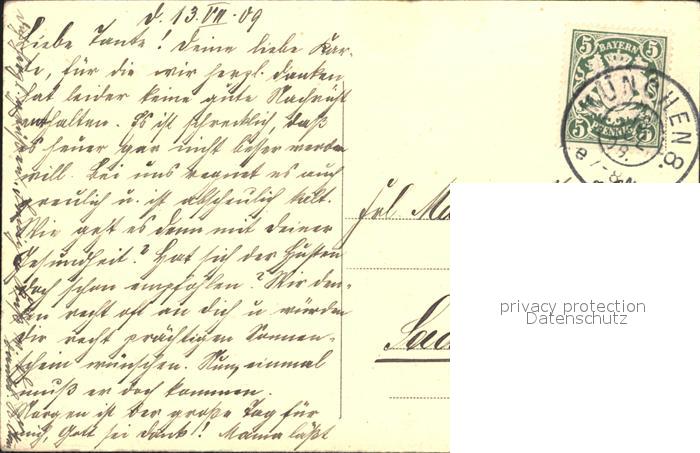 d. 13.VII.09
Liebe Tante! Deine liebe Kar-
te, für die wir herzl. danken
hat leider keine gute Nachricht
enthalten. Es ist schrecklich, daß
es heuer gar nicht besser werden
will. Bei uns regnet es auch
greulich u. ist abscheulich kalt.
Wie geht es denn mit deiner
Gesundheit? Hat sich der Husten
doch schon empfohlen? Wir den-
ken recht oft an dich u würden
dir recht prächtigen Sonnen-
schein wünschen. Nun, einmal
muß er doch kommen.
Morgen ist der große Tag für
mich, Gott sei dank!! Mama läßt
5 BAYERN 5
5 PFENNIG 5
MÜNCHEN 8
Frl.
privacy protection
Datenschutz